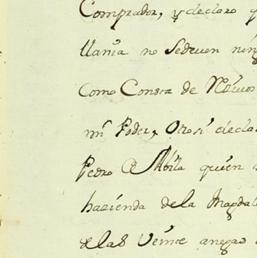 Comprador, y declaro q
llania no sedeven nin
Como Consta de
mi Poder, Otosi decla
Pedro de Abila quien
hazienda dela Magdal
delas veinte anegas